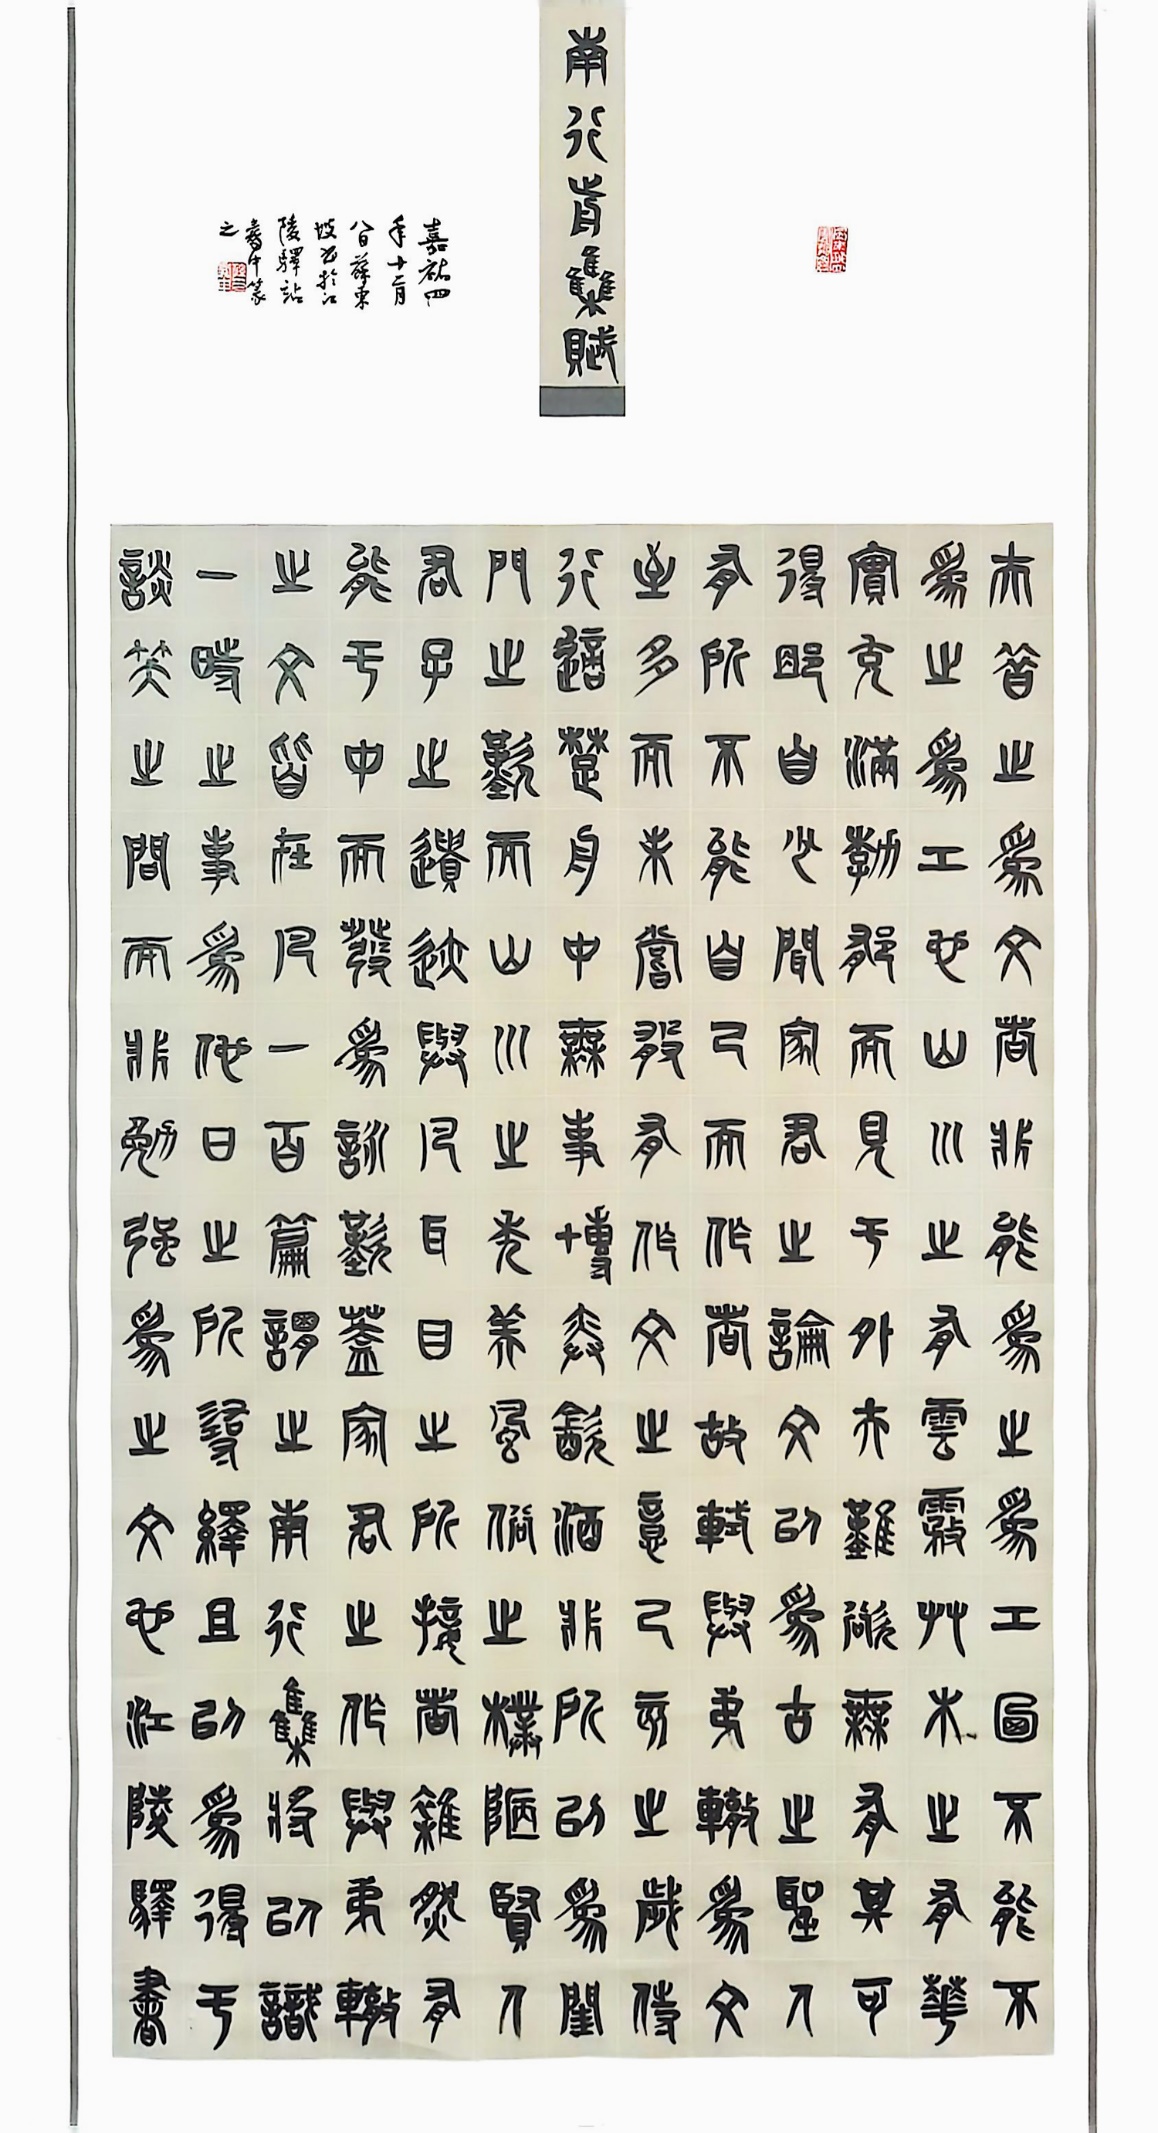 南行前集賦
夫昔之爲文者非能爲之爲工迺不能不
爲之爲工也山川之有雲霧艸木之有華
實充滿勃鬱而見于外夫雖欲無有其可
得耶自少聞家君之論文以爲古之聖人
有所不能自已而作者故軾與弟轍爲文
至多而未嘗敢有作文之意己亥之歲侍
行適楚舟中無事博弈飲酒非所以爲閨
門之歡而山川之秀美風俗之樸陋賢人
君子之遺跡與凡耳目之所接者雜然有
能于中而發爲詠歎蓋家君之作與弟轍
之文皆在凡一百篇謂之南行集將以識
一時之事爲他日之所尋繹且以爲得于
談笑之間而非勉强爲之文也江陵驛書
嘉祐四
年十二月
八日蘇東
坡書於江
陵驛站
壽中篆
之